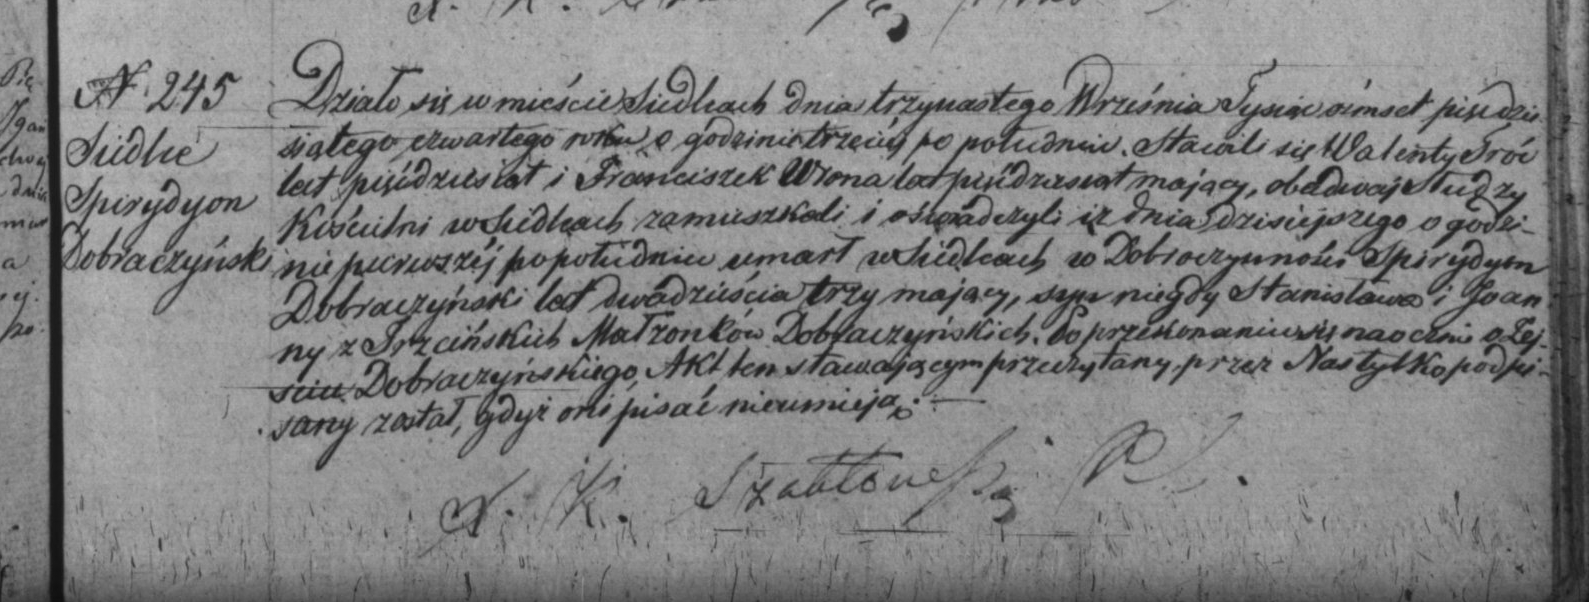 N 245
Siedlce
Spirydyon
Dobraczyński
Działo się w mieście Siedlcach dnia trzynastego Września Tysiąc ośmset pięćdzie
siątego czwartego roku o godzinie trzeciéj po południu. Stawili się Walenty Tróć
lat pięćdziesiąt i Franciszek Wrona lat pięćdziesiąt mający, obadwaj Słudzy
Kościelni w Siedlcach zamieszkali i oświadczyli iż dnia dzisiejszego o godzi-
nie pierwszéj po południu umarł w Siedlcach w Dobroczynności Spirydyon
Dobraczyński lat dwadzieścia trzy mający, syn niegdy Stanisława i Joan
ny z Trzcińskich Małżonków Dobraczyńskich. Po przekonaniu się naocznie o Zej-
sciu Dobraczyńskiego, Akt ten stawającym przeczytany, przez Nas tylko podpi-
sany został, gdyż oni pisać nieumieją.
X. K. Szabłowski